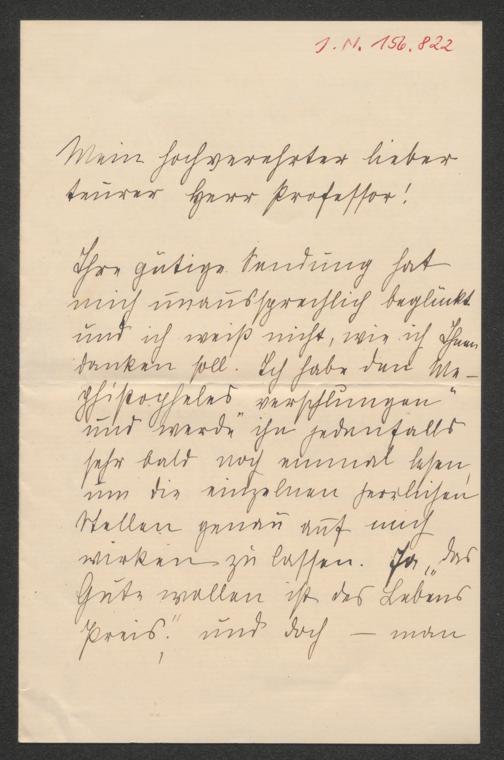 J. N. 156.822
Mein hochverehrter lieber
teurer Herr Professor!
Ihre gütige Sendung hat
mich unaussprechlich beglückt
und ich weiß nicht, wie ich Ihnen
danken soll. Ich habe den Me-
phistopheles verschlungen"
und werde ihn jedenfalls
sehr bald noch einmal lesen,
um die einzelnen herrlichen
Stellen genau auf mich
wirken zu lassen. Ja, „das
Gute wollen ist des Lebens
Preis," und doch — man